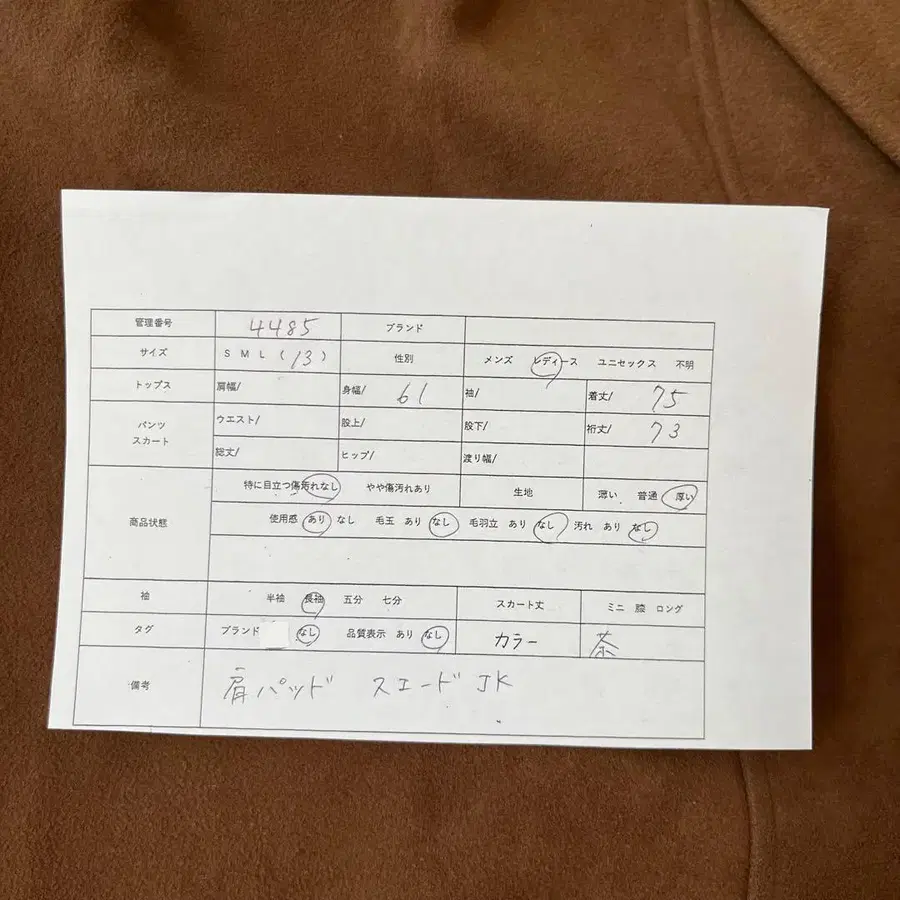 管理番号 4485 ブランド
サイズ S M L (13) 性別 メンズ レディース ユニセックス 不明
トップス 肩幅/ 身幅/ 61 袖/ 着丈/ 75
パンツ スカート ウエスト/ 股上/ 股下/ 裄丈/ 73
総丈/ ヒップ/ 渡り幅/
商品状態 特に目立つ傷汚れなし やや傷汚れあり 生地 薄い 普通 厚い
使用感 あり なし 毛玉 あり なし 毛羽立 あり なし 汚れ あり なし
袖 半袖 長袖 五分 七分 スカート丈 ミニ 膝 ロング
タグ ブランド なし 品質表示 あり なし カラー 茶
備考 肩パッド スエード JK